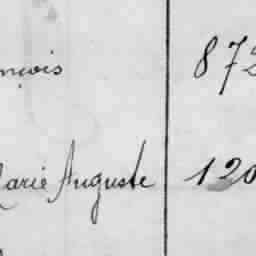 nçois 872
Marie Auguste 120